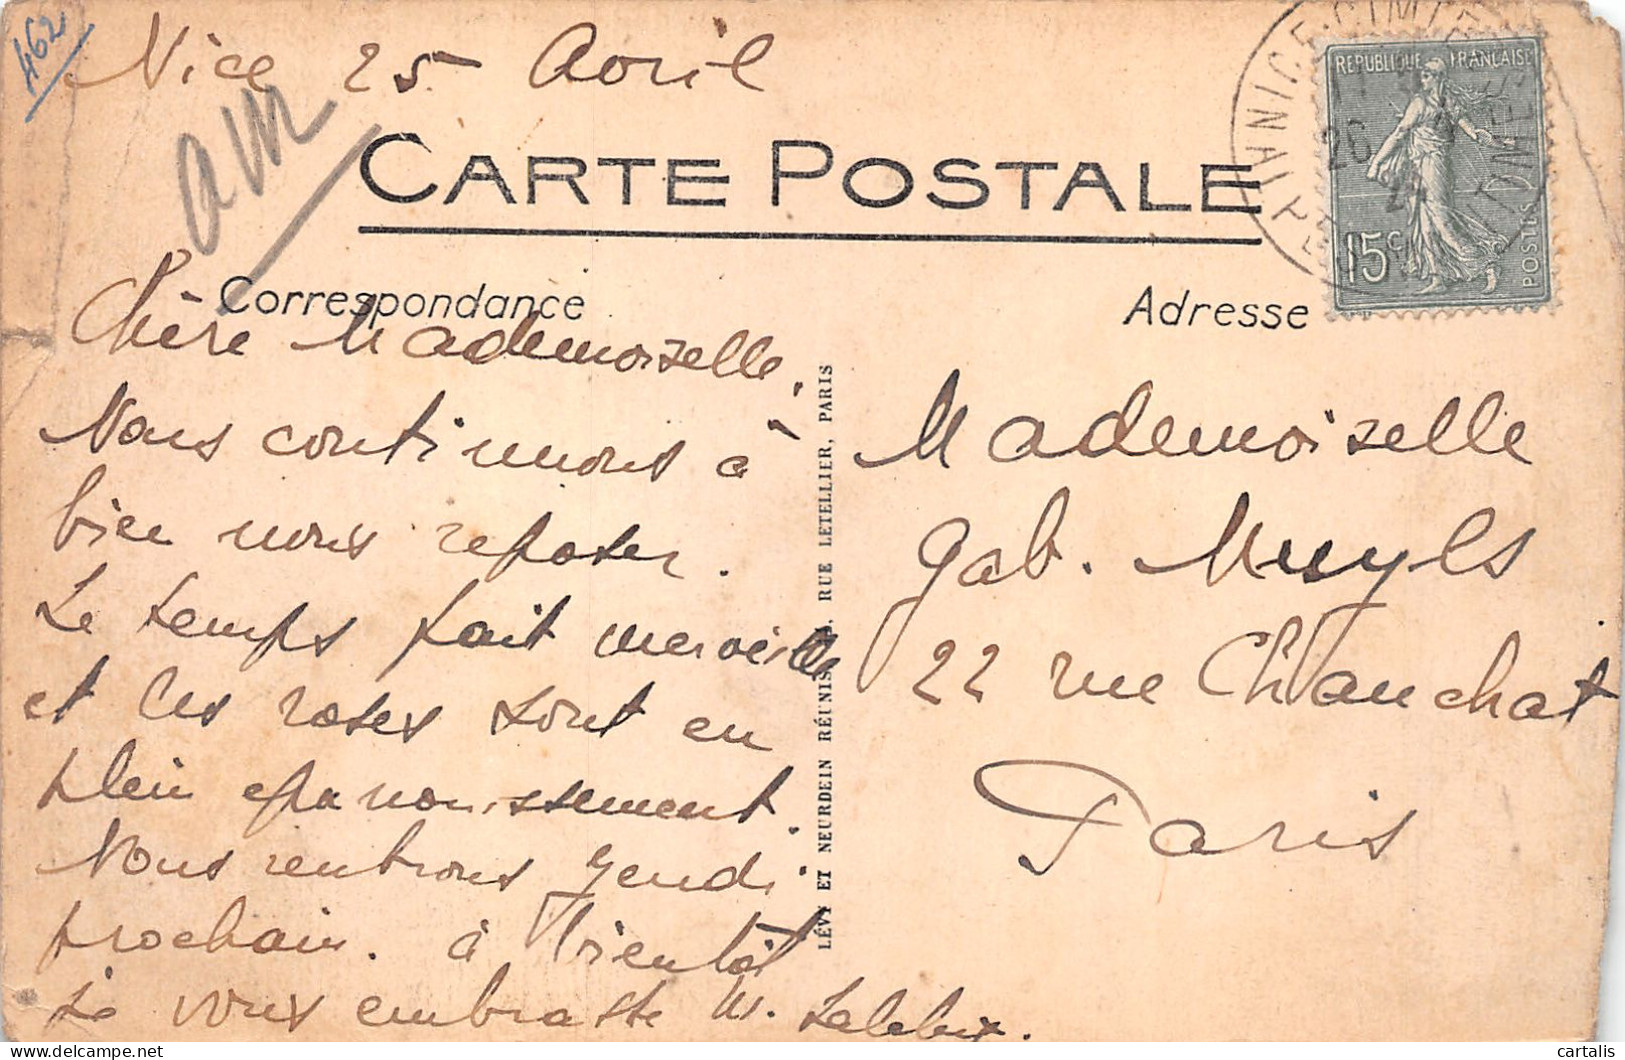 462
Nice 25 Avril
CARTE POSTALE
Correspondance
Adresse
REPUBLIQUE FRANÇAISE
15c
POSTES
NICE-CIMIEZ
26
Chère Mademoiselle,
Nous continuons à
bien nous reposer.
Le temps fait
et les roses sont en
plein epanouissement.
Nous rentrons Jeudi
prochain. à bientôt
Je vous embrasse M.
Mademoiselle
Gab. Muyls
22 rue Chauchat
Paris
LÉVY ET NEURDEIN RÉUNIS, RUE LETELLIER, PARIS
cartalis